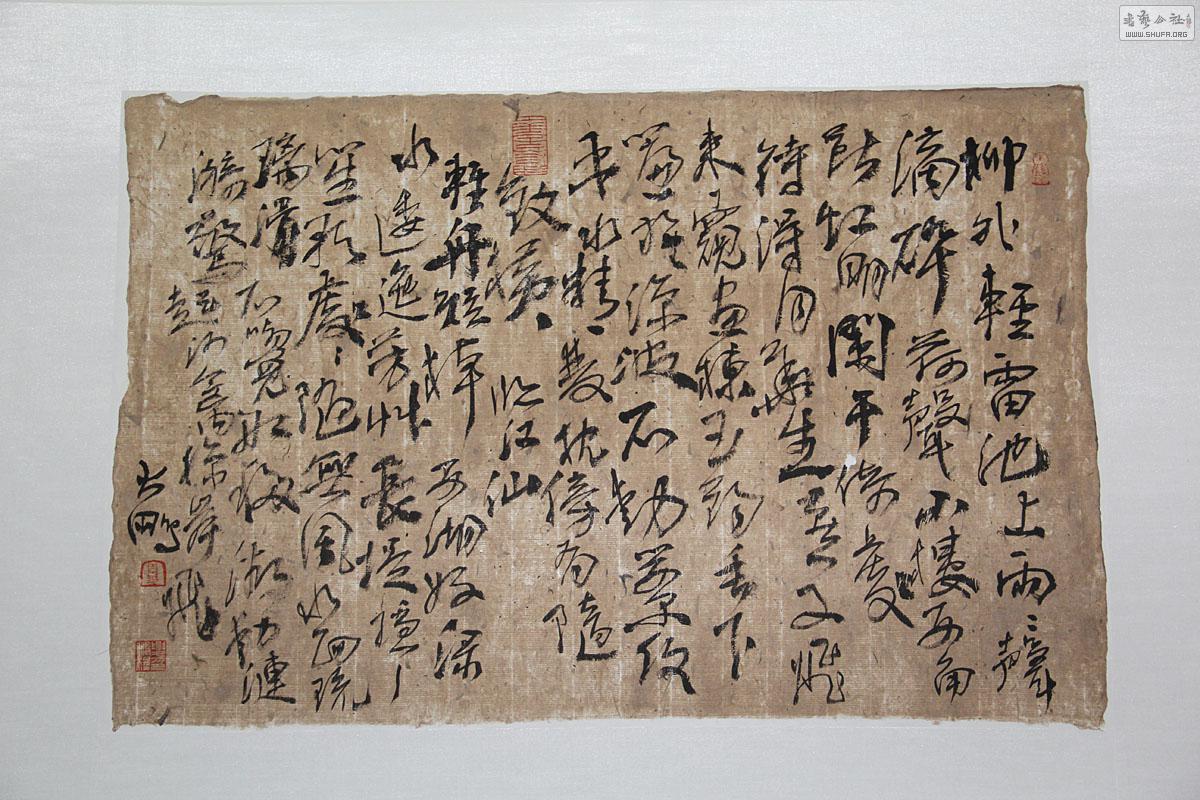 柳外輕雷池上雨〻聲
滴碎荷聲小樓西角
斷虹明闌干倚處
待得月華生燕子飛
來窺畫棟玉鉤垂下
簾旌涼波不動簟紋
平水精雙枕傍有墮
釵橫 臨江仙
輕舟短棹西湖好綠
水逶迤芳艸長堤隱〻
笙歌處〻隨無風水面琉
璃滑不覺船移微動漣
漪驚起沙禽掠岸飛
大鵬
書藝公社
WWW.SHUFA.ORG